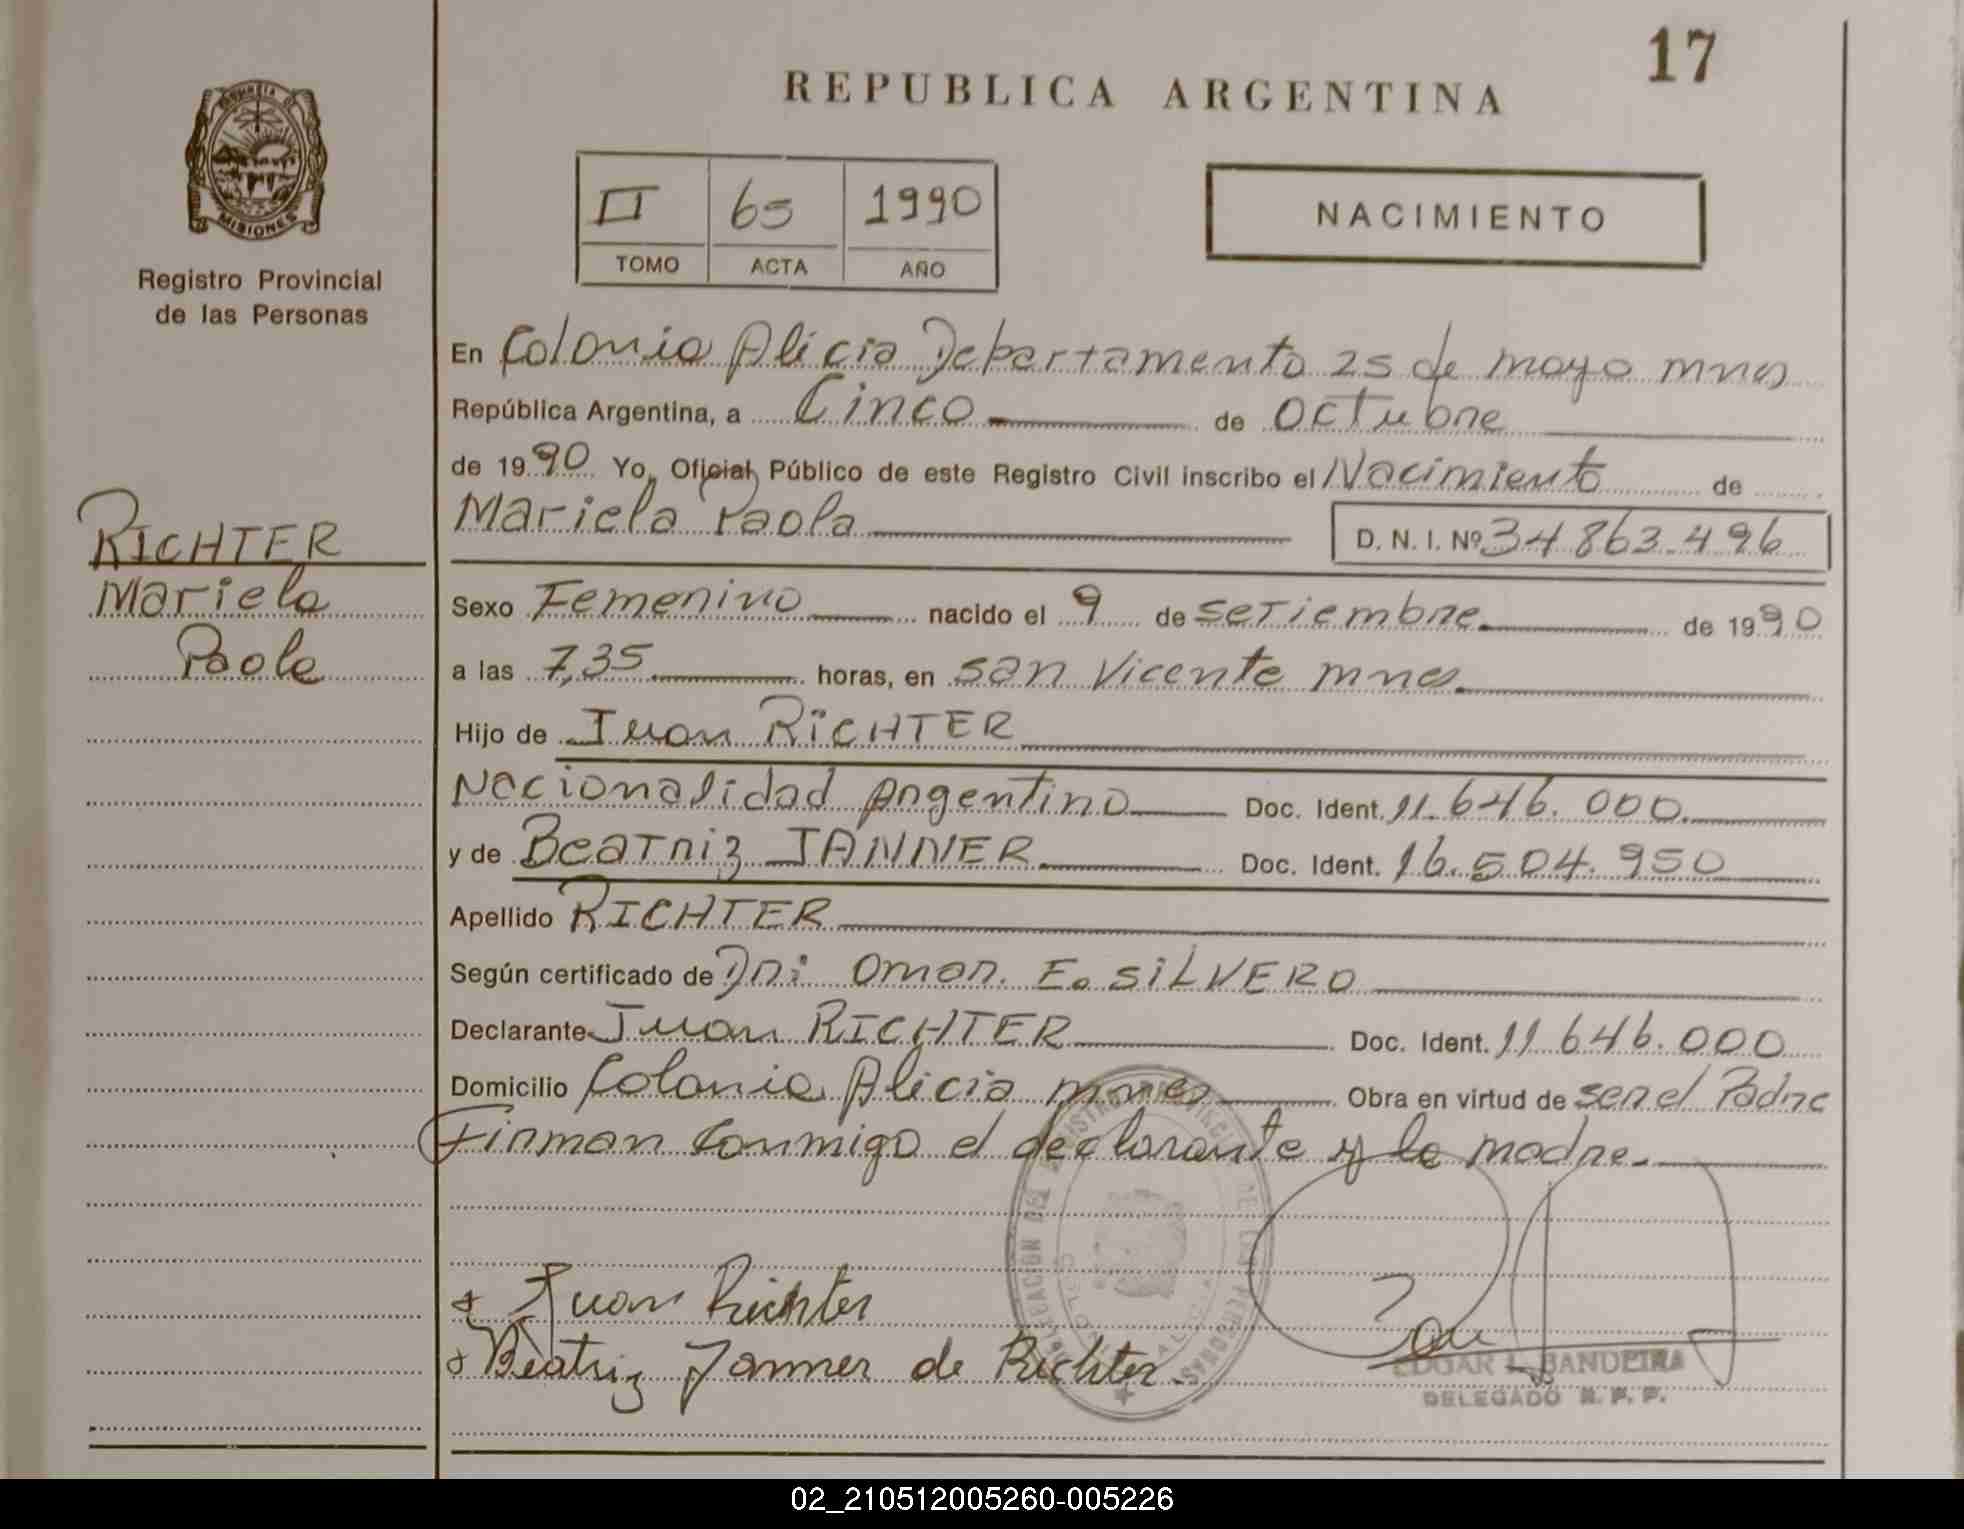 17
REPUBLICA ARGENTINA
PROVINCIA DE
MISIONES
Registro Provincial
de las Personas
II 65 1990
TOMO ACTA AÑO
NACIMIENTO
RICHTER
Mariela
Paola
En Colonia Alicia Departamento 25 de mayo mnes
República Argentina, a Cinco de octubre
de 1990 Yo, Oficial Público de este Registro Civil inscribo el Nacimiento de
Mariela Paola
D. N. I. Nº 34.863.496
Sexo Femenino nacido el 9 de setiembre de 1990
a las 7,35 horas, en san Vicente mnes.
Hijo de Juan RICHTER
Nacionalidad Argentino Doc. Ident. 11.646.000.
y de Beatriz TANNER Doc. Ident. 16.504.950
Apellido RICHTER
Según certificado de Dr: Omar. E. SILVERO
Declarante Juan RICHTER Doc. Ident. 11.646.000
Domicilio Colonia Alicia mnes Obra en virtud de ser el Padre
Firman conmigo el declarante y la madre.
Juan Richter
Beatriz Tanner de Richter.
EDGAR L. BANDEIRA
DELEGADO R. P. P.
02_210512005260-005226